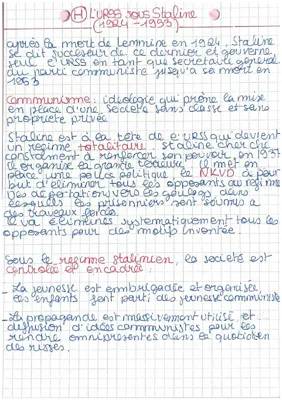 (H) L'URSS sous Staline
(1924-1953)
après la mort de Lemnine en 1924, Staline
se dit successeur de ce dernier et gouverne
seul l'URSS en tant que secretaire general
du parti communiste jusqu'a sa mort en
1953
Communisme : ideologie qui prône la mise
en place d'une societe sans classe et sans
propriete privée
Staline est à la tête de l'URSS qui devient
un regime totalitaire. Staline cherche
constament à renforcer son pouvoir, en 1937
il organise la grande terreur. il met en
place une police politique le NKVD à pour
but d'eliminer tous les opposants au régime
des deportations vers les goulags dans
lesquels les prisonniers sont soumis a
des travaux forcés.
il va éliminés systematiquement tous les
opposants pour des motifs inventée.
Sous le regime stalinien, la société est
controlée et encadrée
- La jeunesse est embrigadée et organisée
les enfants font parti des jeunesse communiste
- La propagande est massivement utilisé et
diffusion d'idées communistes pour les
rendre omnipresentes dans le quotidien
des russes.